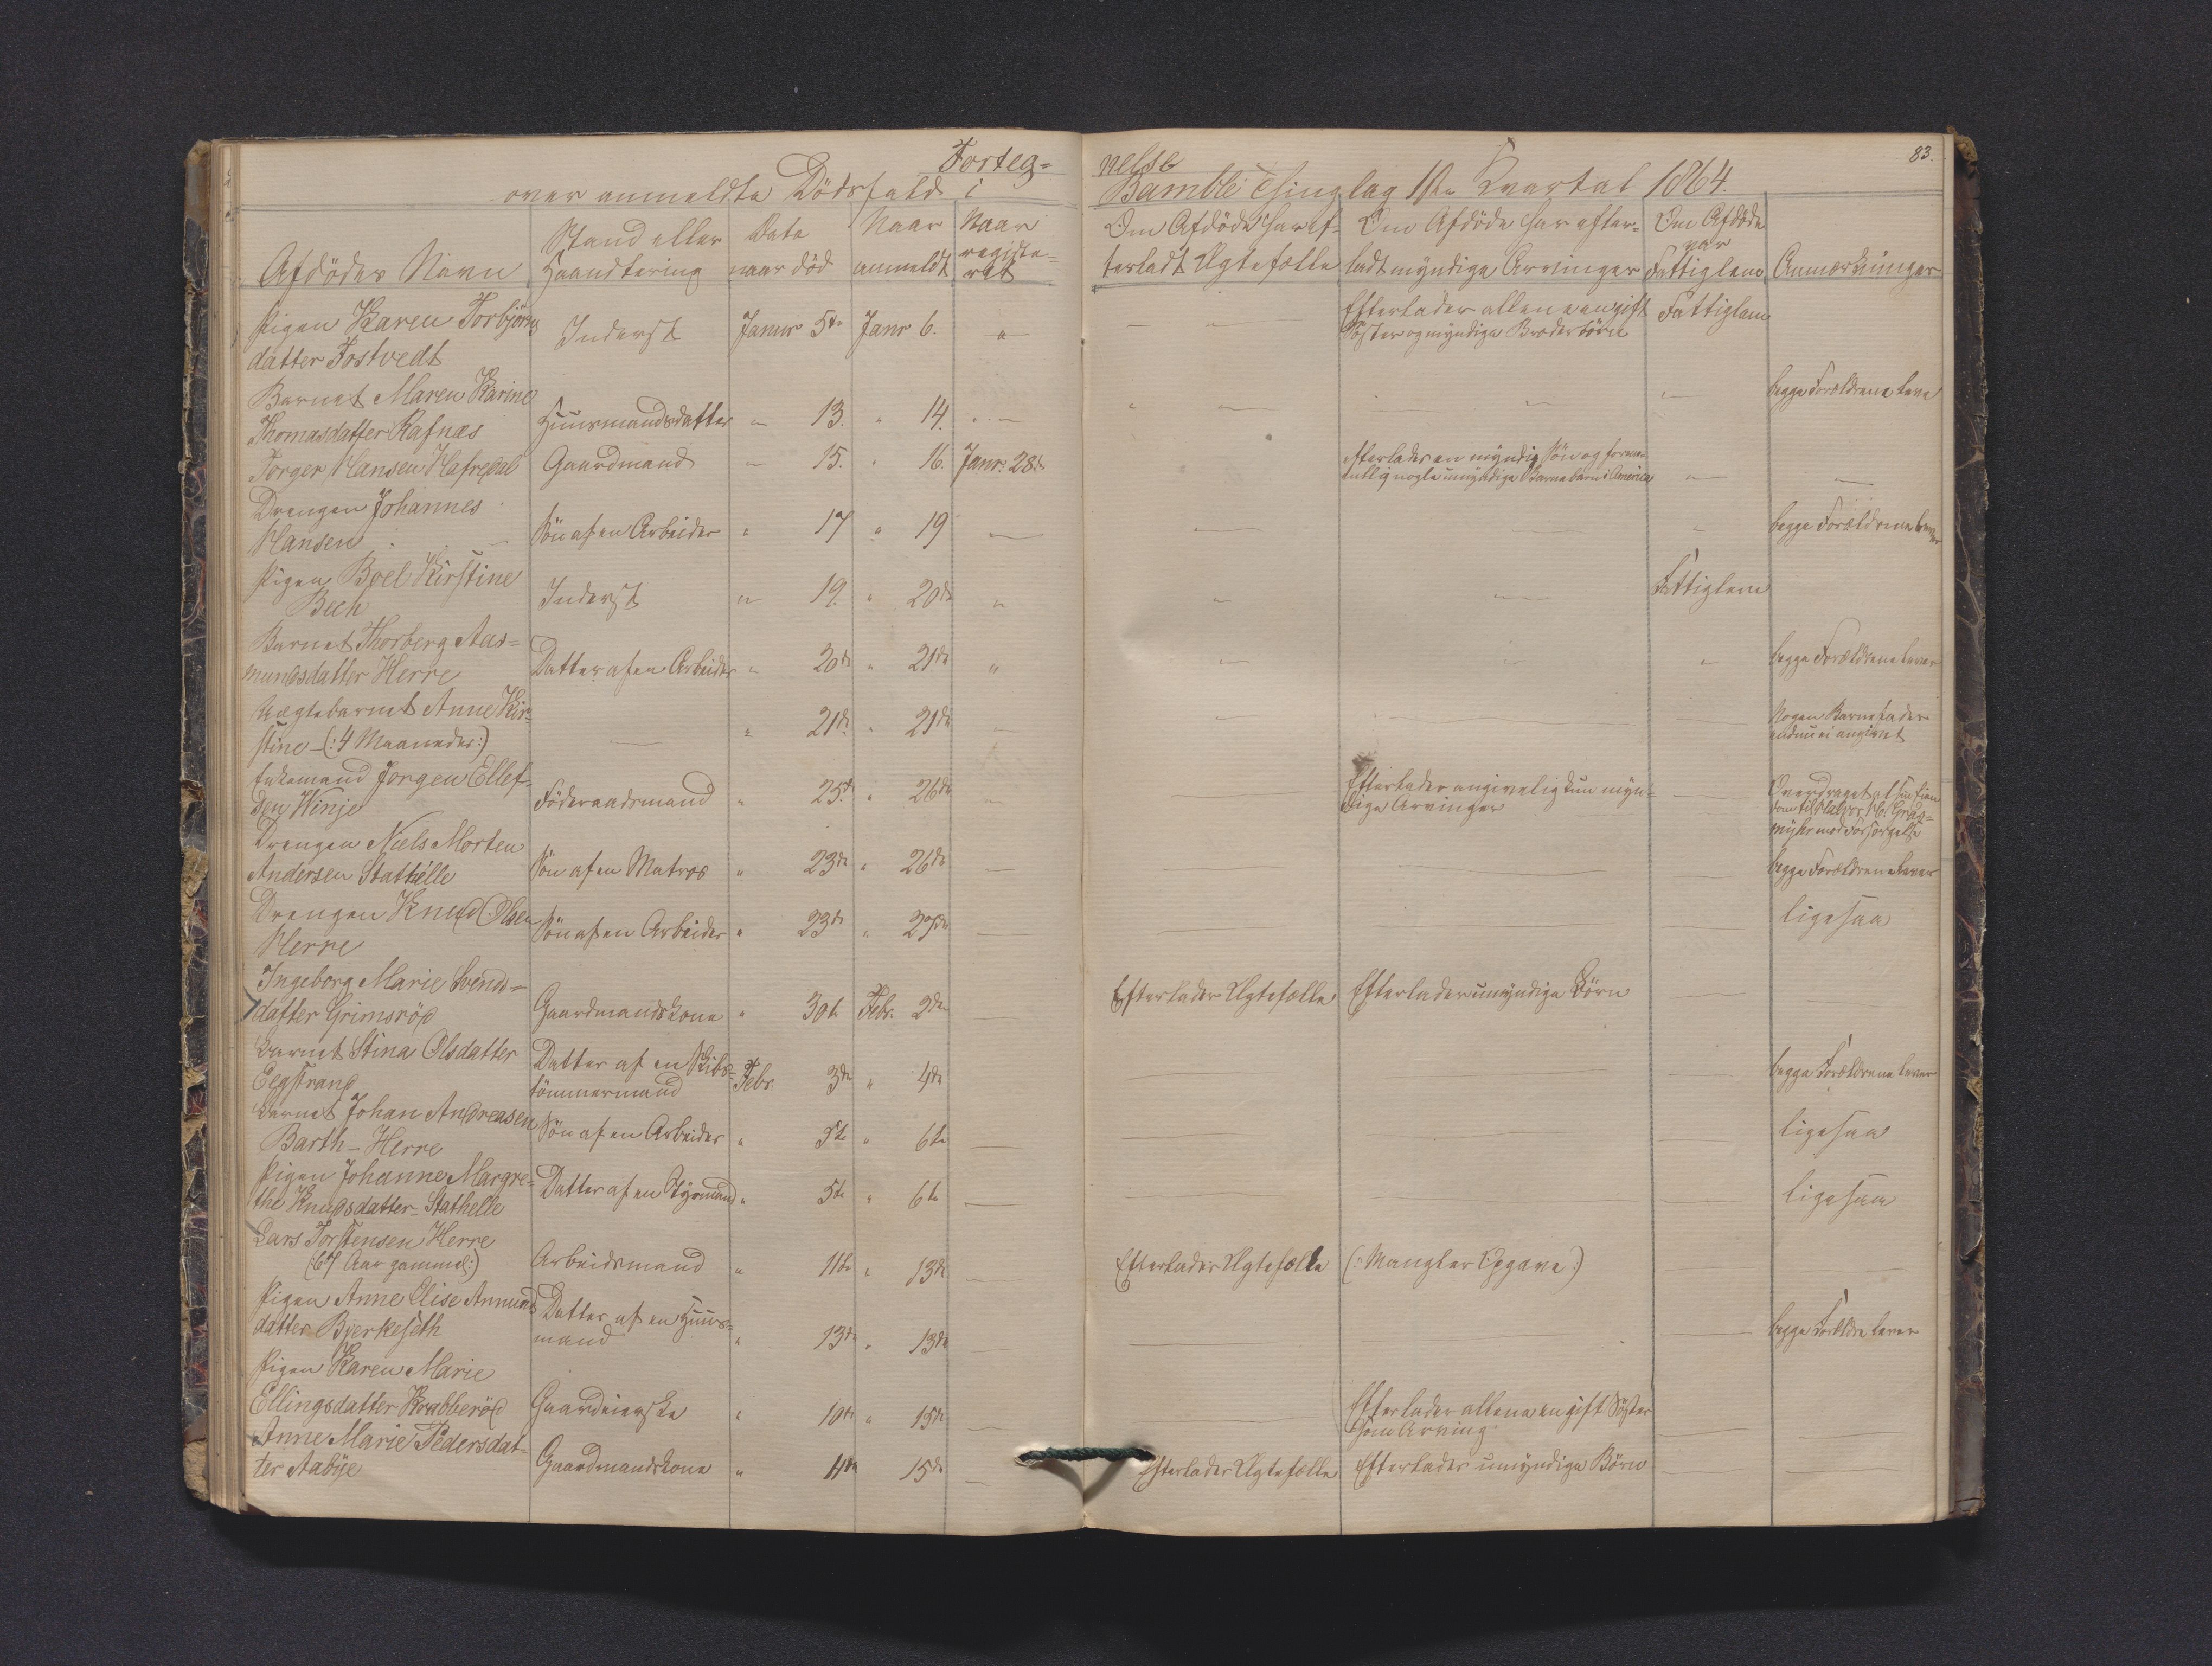 Forteg=
nelse
83.
over anmeldte Dödsfald i
Bamble Thinglag 1ste Qvartal 1864.
Afdödes Navn
Stand eller
Haandtering
Dato
naar död
Naar
anmeldt
Naar
registe=
ret
Om Afdöde har ef=
terladt Ægtefælle
Om Afdöde har efter=
ladt myndige Arvinger
Om Afdöde
var
Fattiglem
Anmærkninger
Pigen Karen Torbjörns
datter Tostvedt
Inderst
Januar 5te
Janr 6.
Efterlader allene en gift
Söster og myndige Broderbörn
Fattiglem
Barnet Maren Karine
Thomasdatter Rafnæs
Huusmandsdatter
" 13.
" 14.
begge Forældrene leve
Torger Hansen Hafredal
Gaardmand
" 15.
" 16.
Janr. 28de
Efterlader en myndig Sön og formo=
entlig nogle umyndige Barnebørn i America
Drengen Johannes
Hansen
Sön af en Arbeider
" 17
" 19
begge Forældrene lever
Pigen Boel Kirstine
Bech
Inderst
" 19.
" 20de
Fattiglem
Barnet Thorberg Aas=
mundsdatter Herre
Datter af en Arbeider
" 20de
" 21de
begge Forældrene lever
Uægtebarnet Anne Kir=
stine (: 4 Maaneder :)
" 21de
" 21de
Nogen Barnefader
endnu ei angivet
Enkemand Jorgen Ellef=
sen Winje
Föderaadsmand
" 25de
" 26de
Efterlader angivelig kun myn=
dige Arvinger
Overdraget al sin Eien
dom til Halvor
myhr mod Forsørgelse
Drengen Niels Morten
Andersen Stathelle
Sön af en Matros
" 23de
" 26de
begge Forældrene lever
Drengen Knud Olsen
Herre
Sön af en Arbeider
" 23de
" 27de
ligesaa
Ingeborg Marie Svends=
datter Grimsröd
Gaardmandskone
" 30te
Febr. 2den
Efterlader Ægtefælle
Efterlader umyndige Börn
Barnet Stina Olsdatter
Eegstrand
Datter af en Skibs=
tömmermand
Febr. 3de
" 4de
begge Forældrene lever
Barnet Johan Andreasen
Barth - Herre
Sön af en Arbeider
" 5te
" 6te
ligesaa
Pigen Johanne Margre=
the Knudsdatter - Stathelle
Datter af en Styrmand
" 5te
" 6te
ligesaa
Lars Torstensen Herre
(: 67 Aar gammel :)
Arbeidsmand
" 11te
" 13de
Efterlader Ægtefælle
(: Mangler Opgave :)
Pigen Anne Elise Annunds
datter Bjerkeseth
Datter af en Huus=
mand
" 13de
" 13de
begge Forældre lever
Pigen Karen Marie
Ellingsdatter Krabberöd
Gaardeierske
" 10de
" 15de
Efterlader allene en gift Söster
som Arving
Anne Marie Pedersdat=
ter Aabye
Gaardmandskone
" 11te
" 15de
Efterlader Ægtefælle
Efterlader umyndige Börn